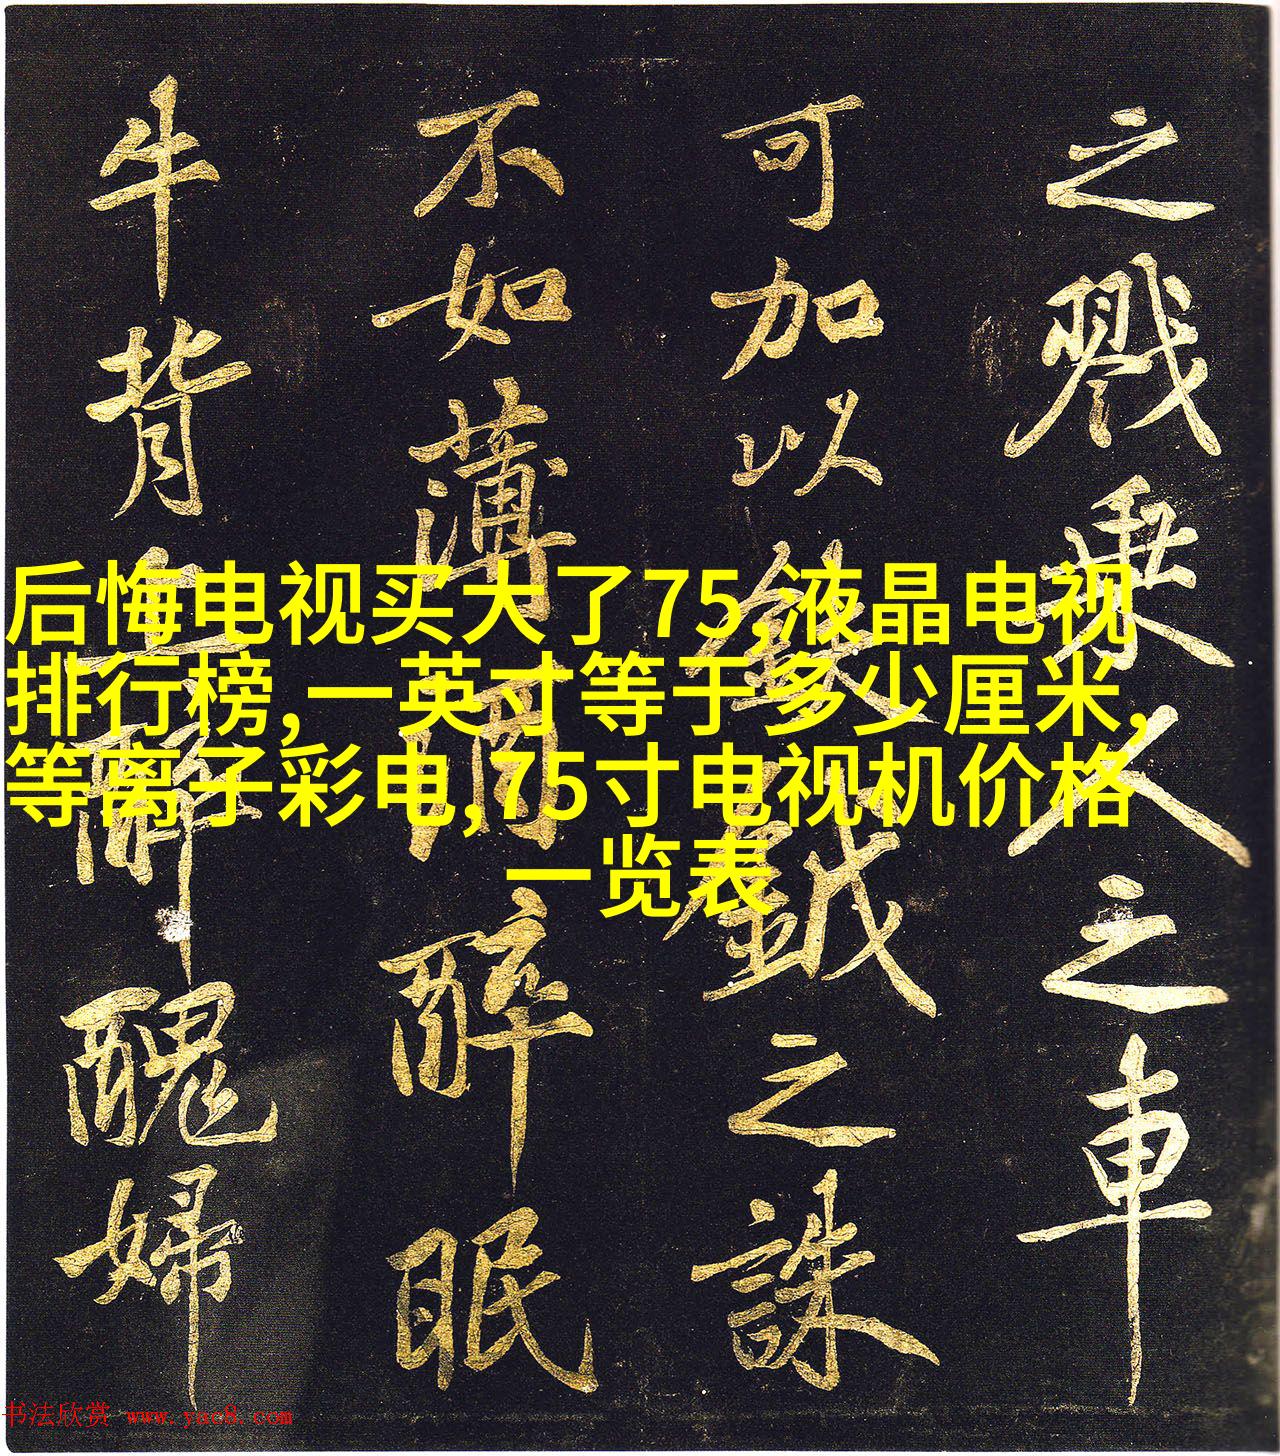 之戮乘人之車
可加以鈇鉞之誅
不如薄酒醉眠
牛背上醉醜婦
后悔电视买大了75,液晶电视
排行榜,一英寸等于多少厘米,
等离子彩电,75寸电视机价格
一览表
书法欣赏 www.yac8.com